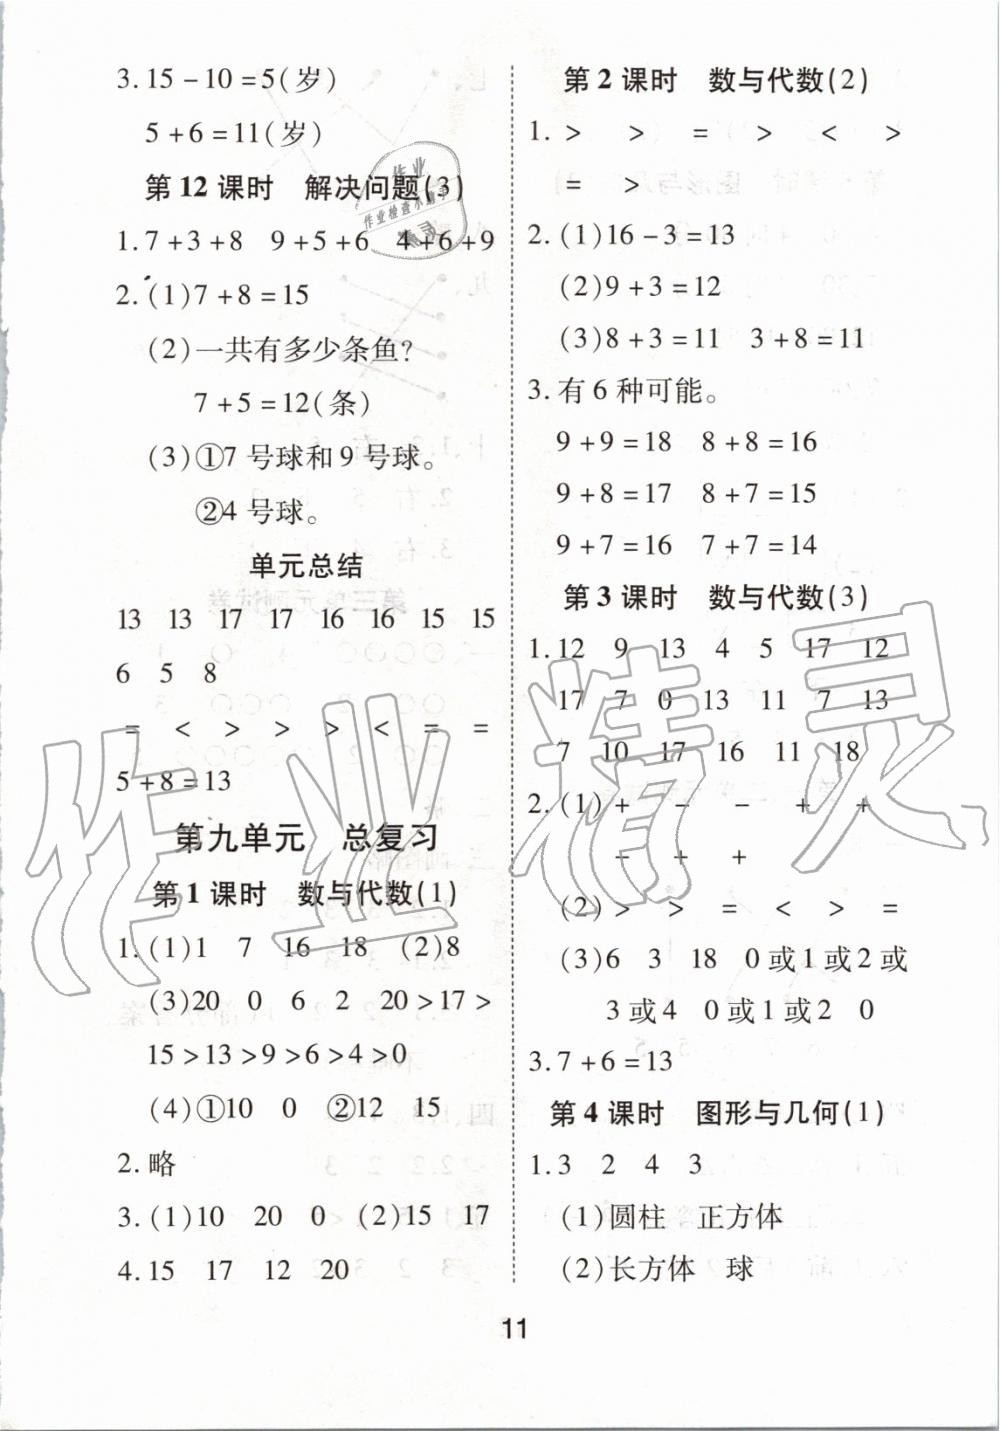 3. 15-10=5(岁)
5+6=11(岁)
第12课时 解决问题(3)
1. 7+3+8 9+5+6 4+6+9
2. (1)7+8=15
(2)一共有多少条鱼?
7+5=12(条)
(3)①7号球和9号球。
②4号球。
单元总结
13 13 17 17 16 16 15 15
6 5 8
= < > > > < = =
5+8=13
第九单元 总复习
第1课时 数与代数(1)
1. (1)1 7 16 18 (2)8
(3)20 0 6 2 20>17>
15>13>9>6>4>0
(4)①10 0 ②12 15
2. 略
3. (1)10 20 0 (2)15 17
4. 15 17 12 20
第2课时 数与代数(2)
1. > > = > < >
= >
2. (1)16-3=13
(2)9+3=12
(3)8+3=11 3+8=11
3. 有6种可能。
9+9=18 8+8=16
9+8=17 8+7=15
9+7=16 7+7=14
第3课时 数与代数(3)
1. 12 9 13 4 5 17 12
17 7 0 13 11 7 13
7 10 17 16 11 18
2. (1) + - - + +
- + +
(2) > > = < > =
(3)6 3 18 0或1或2或
3或4 0或1或2 0
3. 7+6=13
第4课时 图形与几何(1)
1. 3 2 4 3
(1)圆柱 正方体
(2)长方体 球
11
作业精灵
作业
作业检查小助手